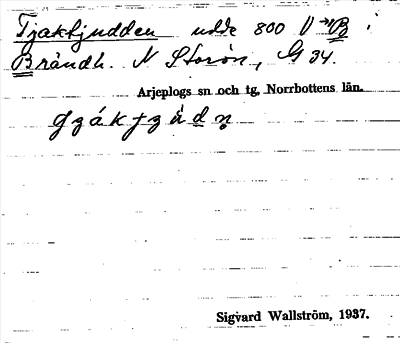 Tjaktjudden udde 800 V→B i
Brändh. N Storön, G 34.
Arjeplogs sn och tg, Norrbottens län.
Sigvard Wallström, 1937.